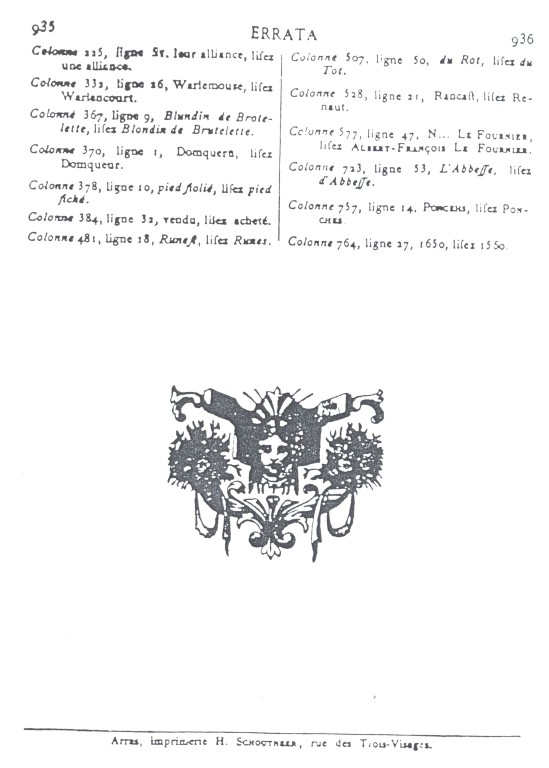 935
ERRATA
936
Colonne 225, ligne 51, leur alliance, liſez
une alliance.
Colonne 332, ligne 26, Warlemouse, liſez
Warlencourt.
Colonne 367, ligne 9, Blundin de Brote-
lette, liſez Blondin de Brutelette.
Colonne 370, ligne 1, Domquerù, liſez
Domqueur.
Colonne 378, ligne 10, pied ſiolié, liſez pied
fiché.
Colonne 384, ligne 32, vendu, liſez acheté.
Colonne 481, ligne 18, Runeſt, liſez Runes.
Colonne 507, ligne 50, du Rot, liſez du
Tot.
Colonne 528, ligne 21, Rancaſt, liſez Re-
naut.
Colonne 577, ligne 47, N... LE FOURNIER,
liſez ALBERT-FRANÇOIS LE FOURNIER.
Colonne 723, ligne 53, L'Abbeſſe, liſez
d'Abbeſſe.
Colonne 757, ligne 14, PONCENS, liſez PON-
CHES.
Colonne 764, ligne 27, 1650, liſez 1550.
Arras, imprimerie H. SCHOUTHEER, rue des Trois-Visages.